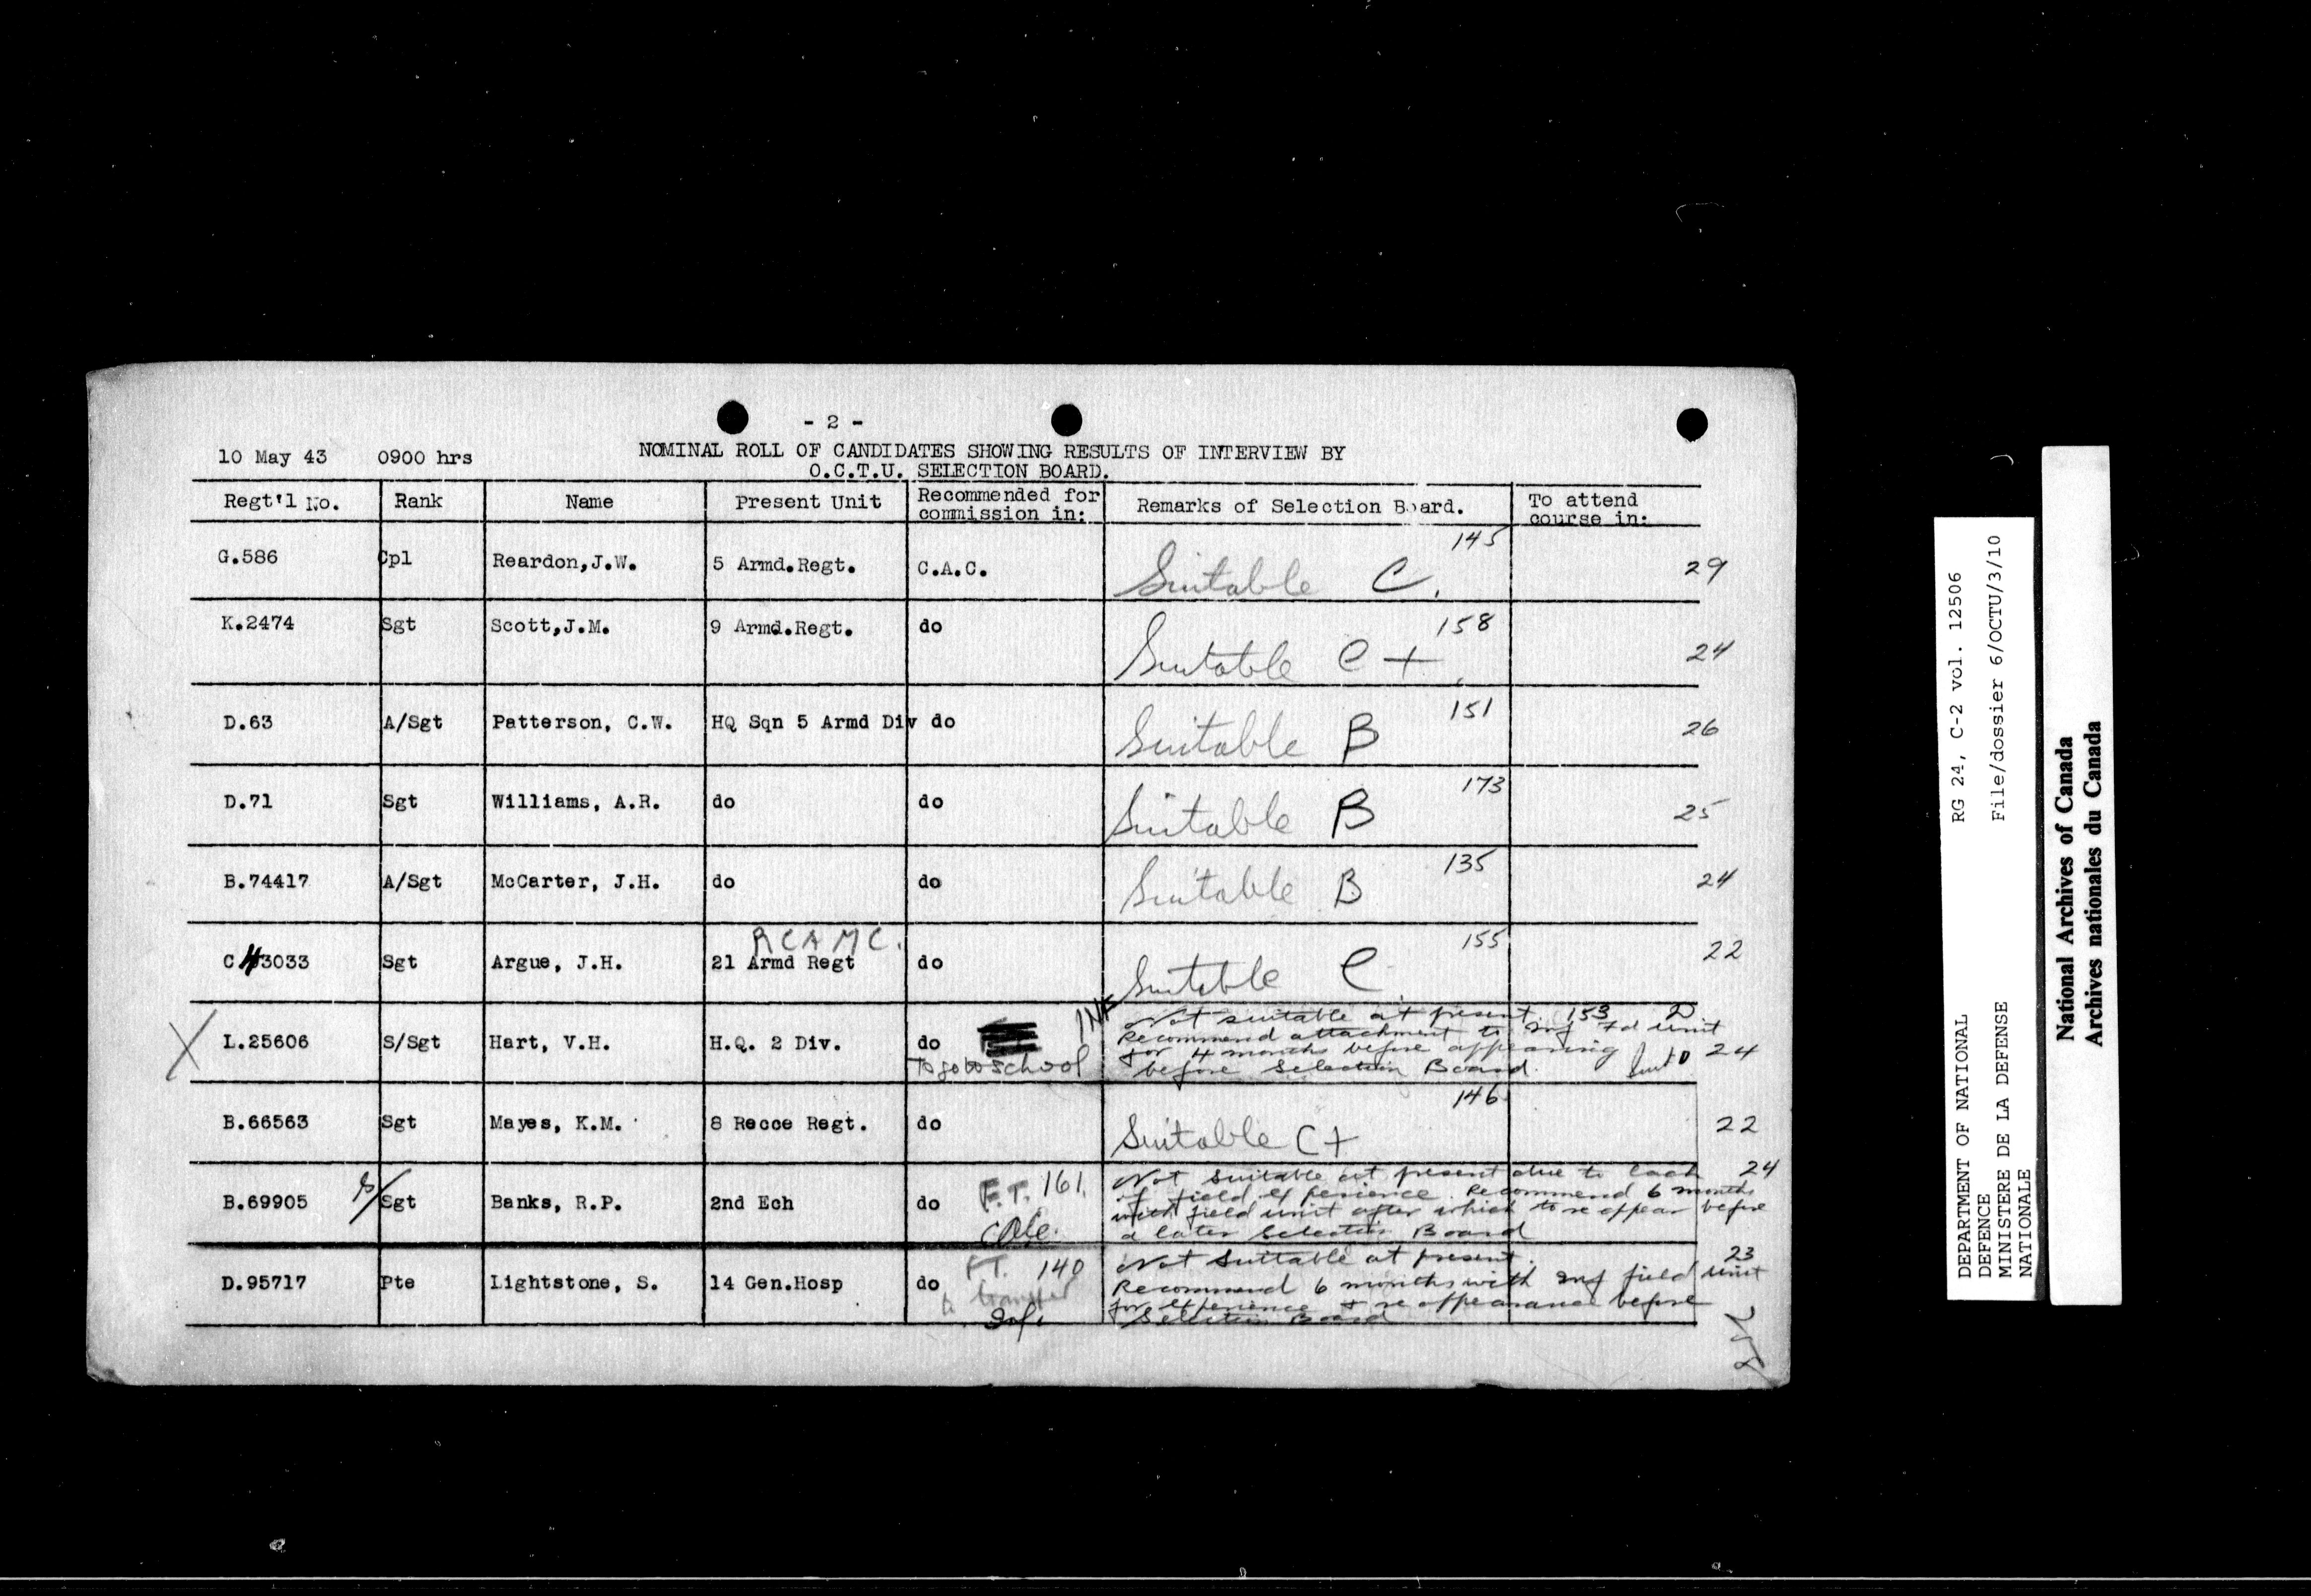 - 2 -
10 May 43 0900 hrs NOMINAL ROLL OF CANDIDATES SHOWING RESULTS OF INTERVIEW BY
O.C.T.U. SELECTION BOARD.
Regt'l No. Rank Name Present Unit Recommended for commission in: Remarks of Selection Board. To attend course in:
G.586 Cpl Reardon,J.W. 5 Armd.Regt. C.A.C. Suitable C. 145 29
K.2474 Sgt Scott,J.M. 9 Armd.Regt. do Suitable C + 158 24
D.63 A/Sgt Patterson, C.W. HQ Sqn 5 Armd Div do Suitable B 151 26
D.71 Sgt Williams, A.R. do do Suitable B 173 25
B.74417 A/Sgt McCarter, J.H. do do Suitable B 135 24
R C A M C.
C 43033 Sgt Argue, J.H. 21 Armd Regt do Suitable C 155 22
L.25606 S/Sgt Hart, V.H. H.Q. 2 Div. do
To go to school
INF
Not suitable at present. 153 D
Recommend attachment to Inf Fd unit
for 4 months before appearing 24
before Selection Board.
B.66563 Sgt Mayes, K.M. 8 Recce Regt. do Suitable C+ 146 22
B.69905 S/Sgt Banks, R.P. 2nd Ech do F.T. 161
Not suitable at present due to lack 24
of field experience. Recommend 6 months
with field unit after which to re appear before
a later Selection Board
D.95717 Pte Lightstone, S. 14 Gen.Hosp do F.T. 140
to transfer
Inf.
Not suitable at present. 23
Recommend 6 months with Inf field unit
for experience & re appearance before
Selection Board
DEPARTMENT OF NATIONAL
DEFENCE
MINISTERE DE LA DEFENSE
NATIONALE
RG 24, C-2 vol. 12506
File/dossier 6/OCTU/3/10
National Archives of Canada
Archives nationales du Canada